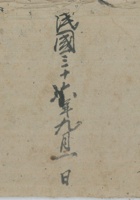 民國三十七年九月一日